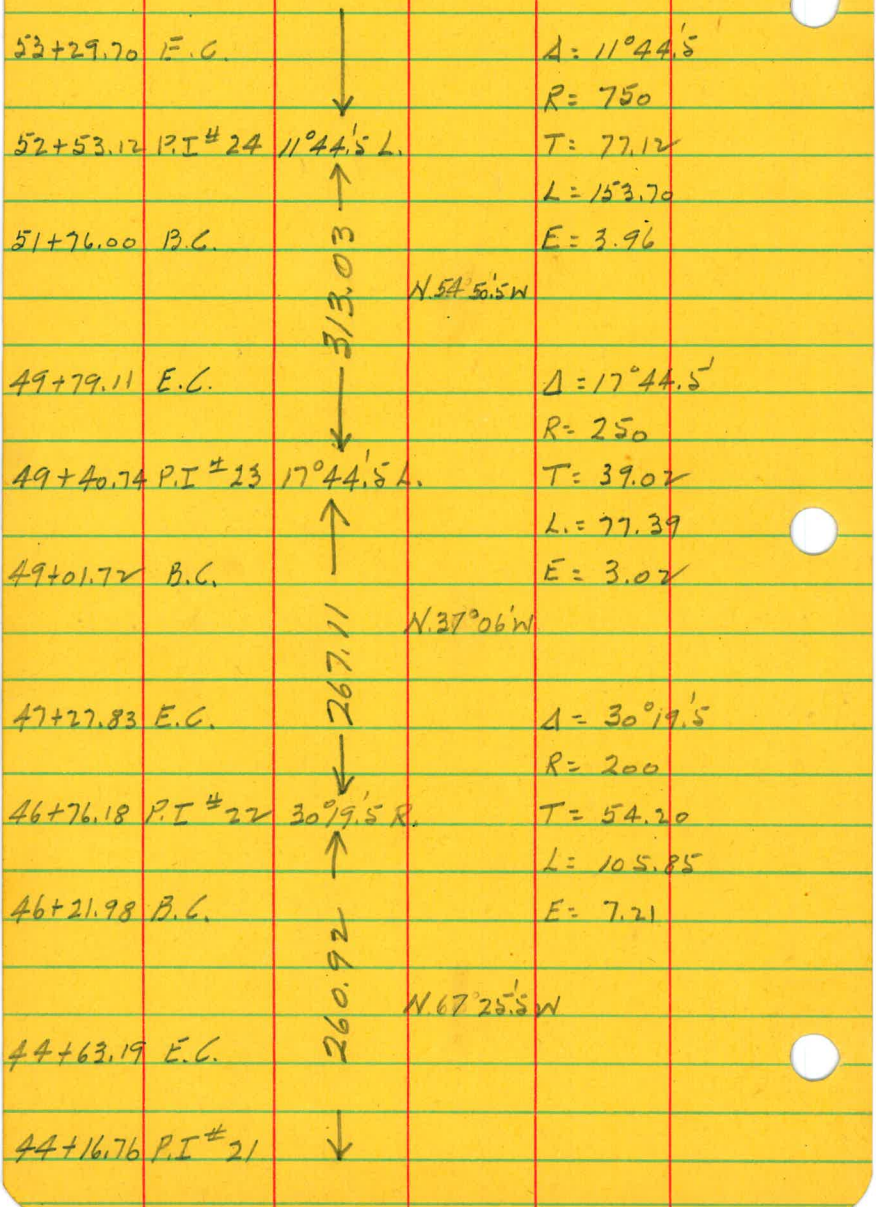 53+29.70 E.C. Δ = 11°44.'5
R = 750
52+53.12 P.I # 24 11°44.'5 L. T = 77.12
L = 153.70
51+76.00 B.C. E = 3.96
313.03
N.54°50.'5W
49+79.11 E.C. Δ = 17°44.5'
R = 250
49+40.74 P.I # 23 17°44.'5 L. T = 39.02
L. = 77.39
49+01.72 B.C. E = 3.02
267.11
N.37°06'W
47+27.83 E.C. Δ = 30°19.'5
R = 200
46+76.18 P.I # 22 30°19.'5 R. T = 54.20
L = 105.85
46+21.98 B.C. E = 7.21
260.92
N.67°25.'5W
44+63.19 E.C.
44+16.76 P.I # 21